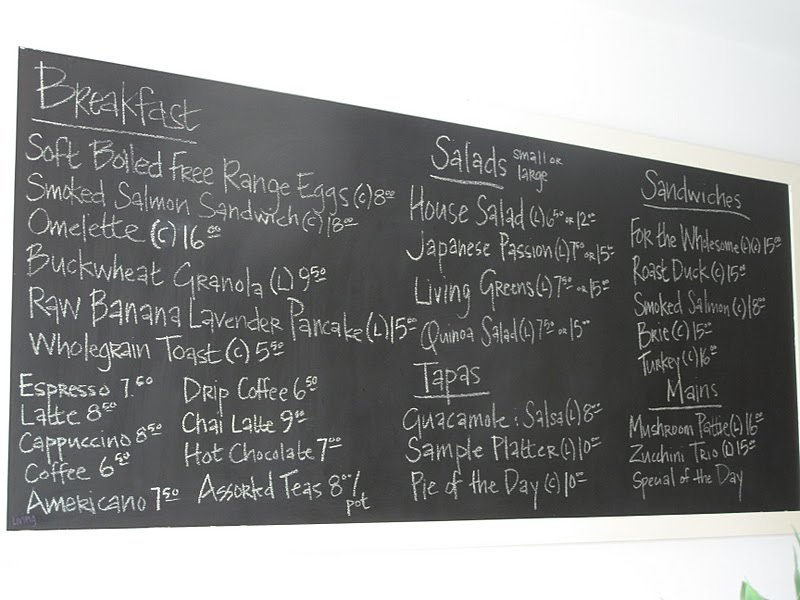 Breakfast
Soft Boiled Free Range Eggs (C) 8.00
Smoked Salmon Sandwich (C) 18.00
Omelette (C) 16.00
Buckwheat Granola (L) 9.50
Raw Banana Lavender Pancake (L) 15.00
Wholegrain Toast (C) 5.50
Espresso 7.50
Latte 8.50
Cappuccino 8.50
Coffee 6.50
Americano 7.50
Drip Coffee 6.50
Chai Latte 9.00
Hot Chocolate 7.00
Assorted Teas 8.00/pot
Salads small or large
House Salad (L) 6.50 or 12.00
Japanese Passion (L) 7.50 or 15.00
Living Greens (L) 7.50 or 15.00
Quinoa Salad (L) 7.50 or 15.00
Tapas
Guacamole : Salsa (L) 8.00
Sample Platter (L) 10.00
Pie of the Day (C) 10.00
Sandwiches
For the Wholesome (L) (C) 15.00
Roast Duck (C) 15.00
Smoked Salmon (C) 18.00
Brie (C) 15.00
Turkey (C) 16.00
Mains
Mushroom Pattie (L) 16.00
Zucchini Trio (L) 15.00
Special of the Day
Living